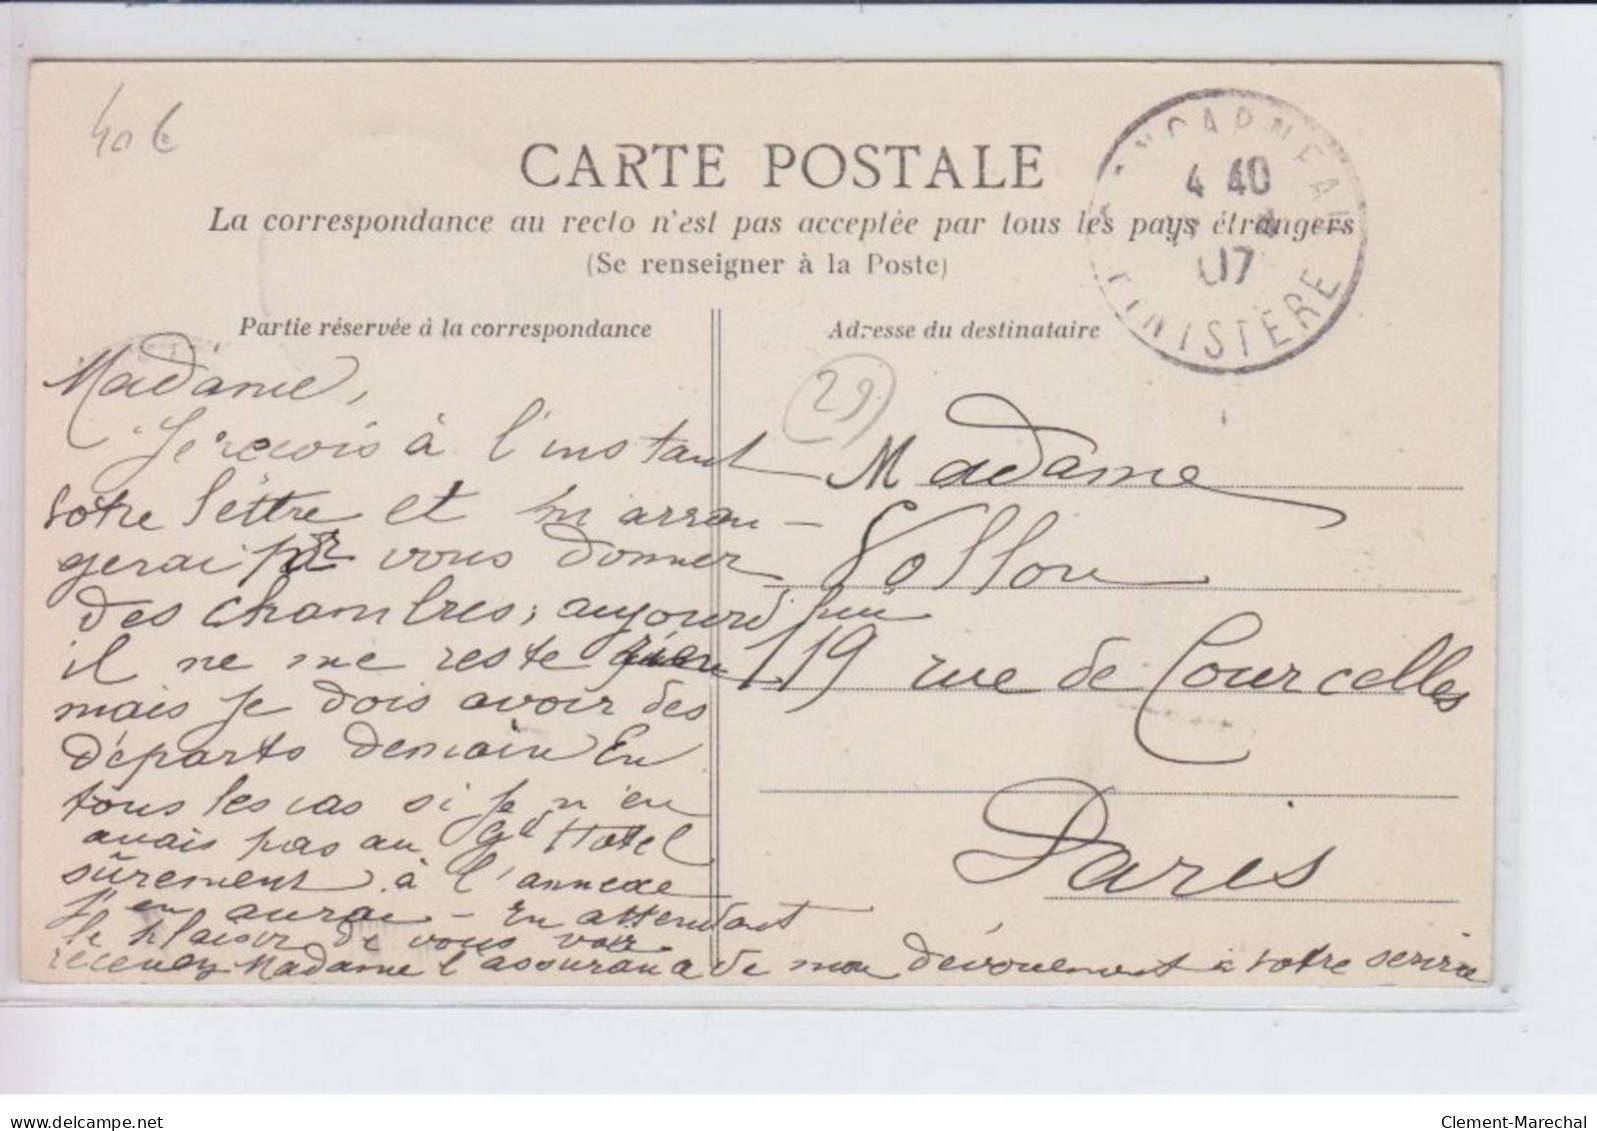 40€
CARTE POSTALE
La correspondance au recto n'est pas acceptée par tous les pays étrangers
(Se renseigner à la Poste)
4 40
07
FINISTÈRE
Partie réservée à la correspondance
Adresse du destinataire
29
Madame,
Je reçois à l'instant
votre lettre et m'arran-
gerai pr vous donner
des chambres, aujourd'hui
il ne me reste rien
mais je dois avoir des
départs demain En
tous les cas si je n'en
avais pas au Gd Hotel
sûrement à l'annexe
j'en aurai - En attendant
le plaisir de vous voir
recevez Madame l'assurance de mon dévouement à votre service
Madame
Vollon
119 rue de Courcelles
Paris
delcampe.net
Clement-Marechal